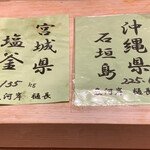 沖縄県
石垣島
225.
河岸 樋長
宮城県
塩釜
135 kg
河岸 樋長